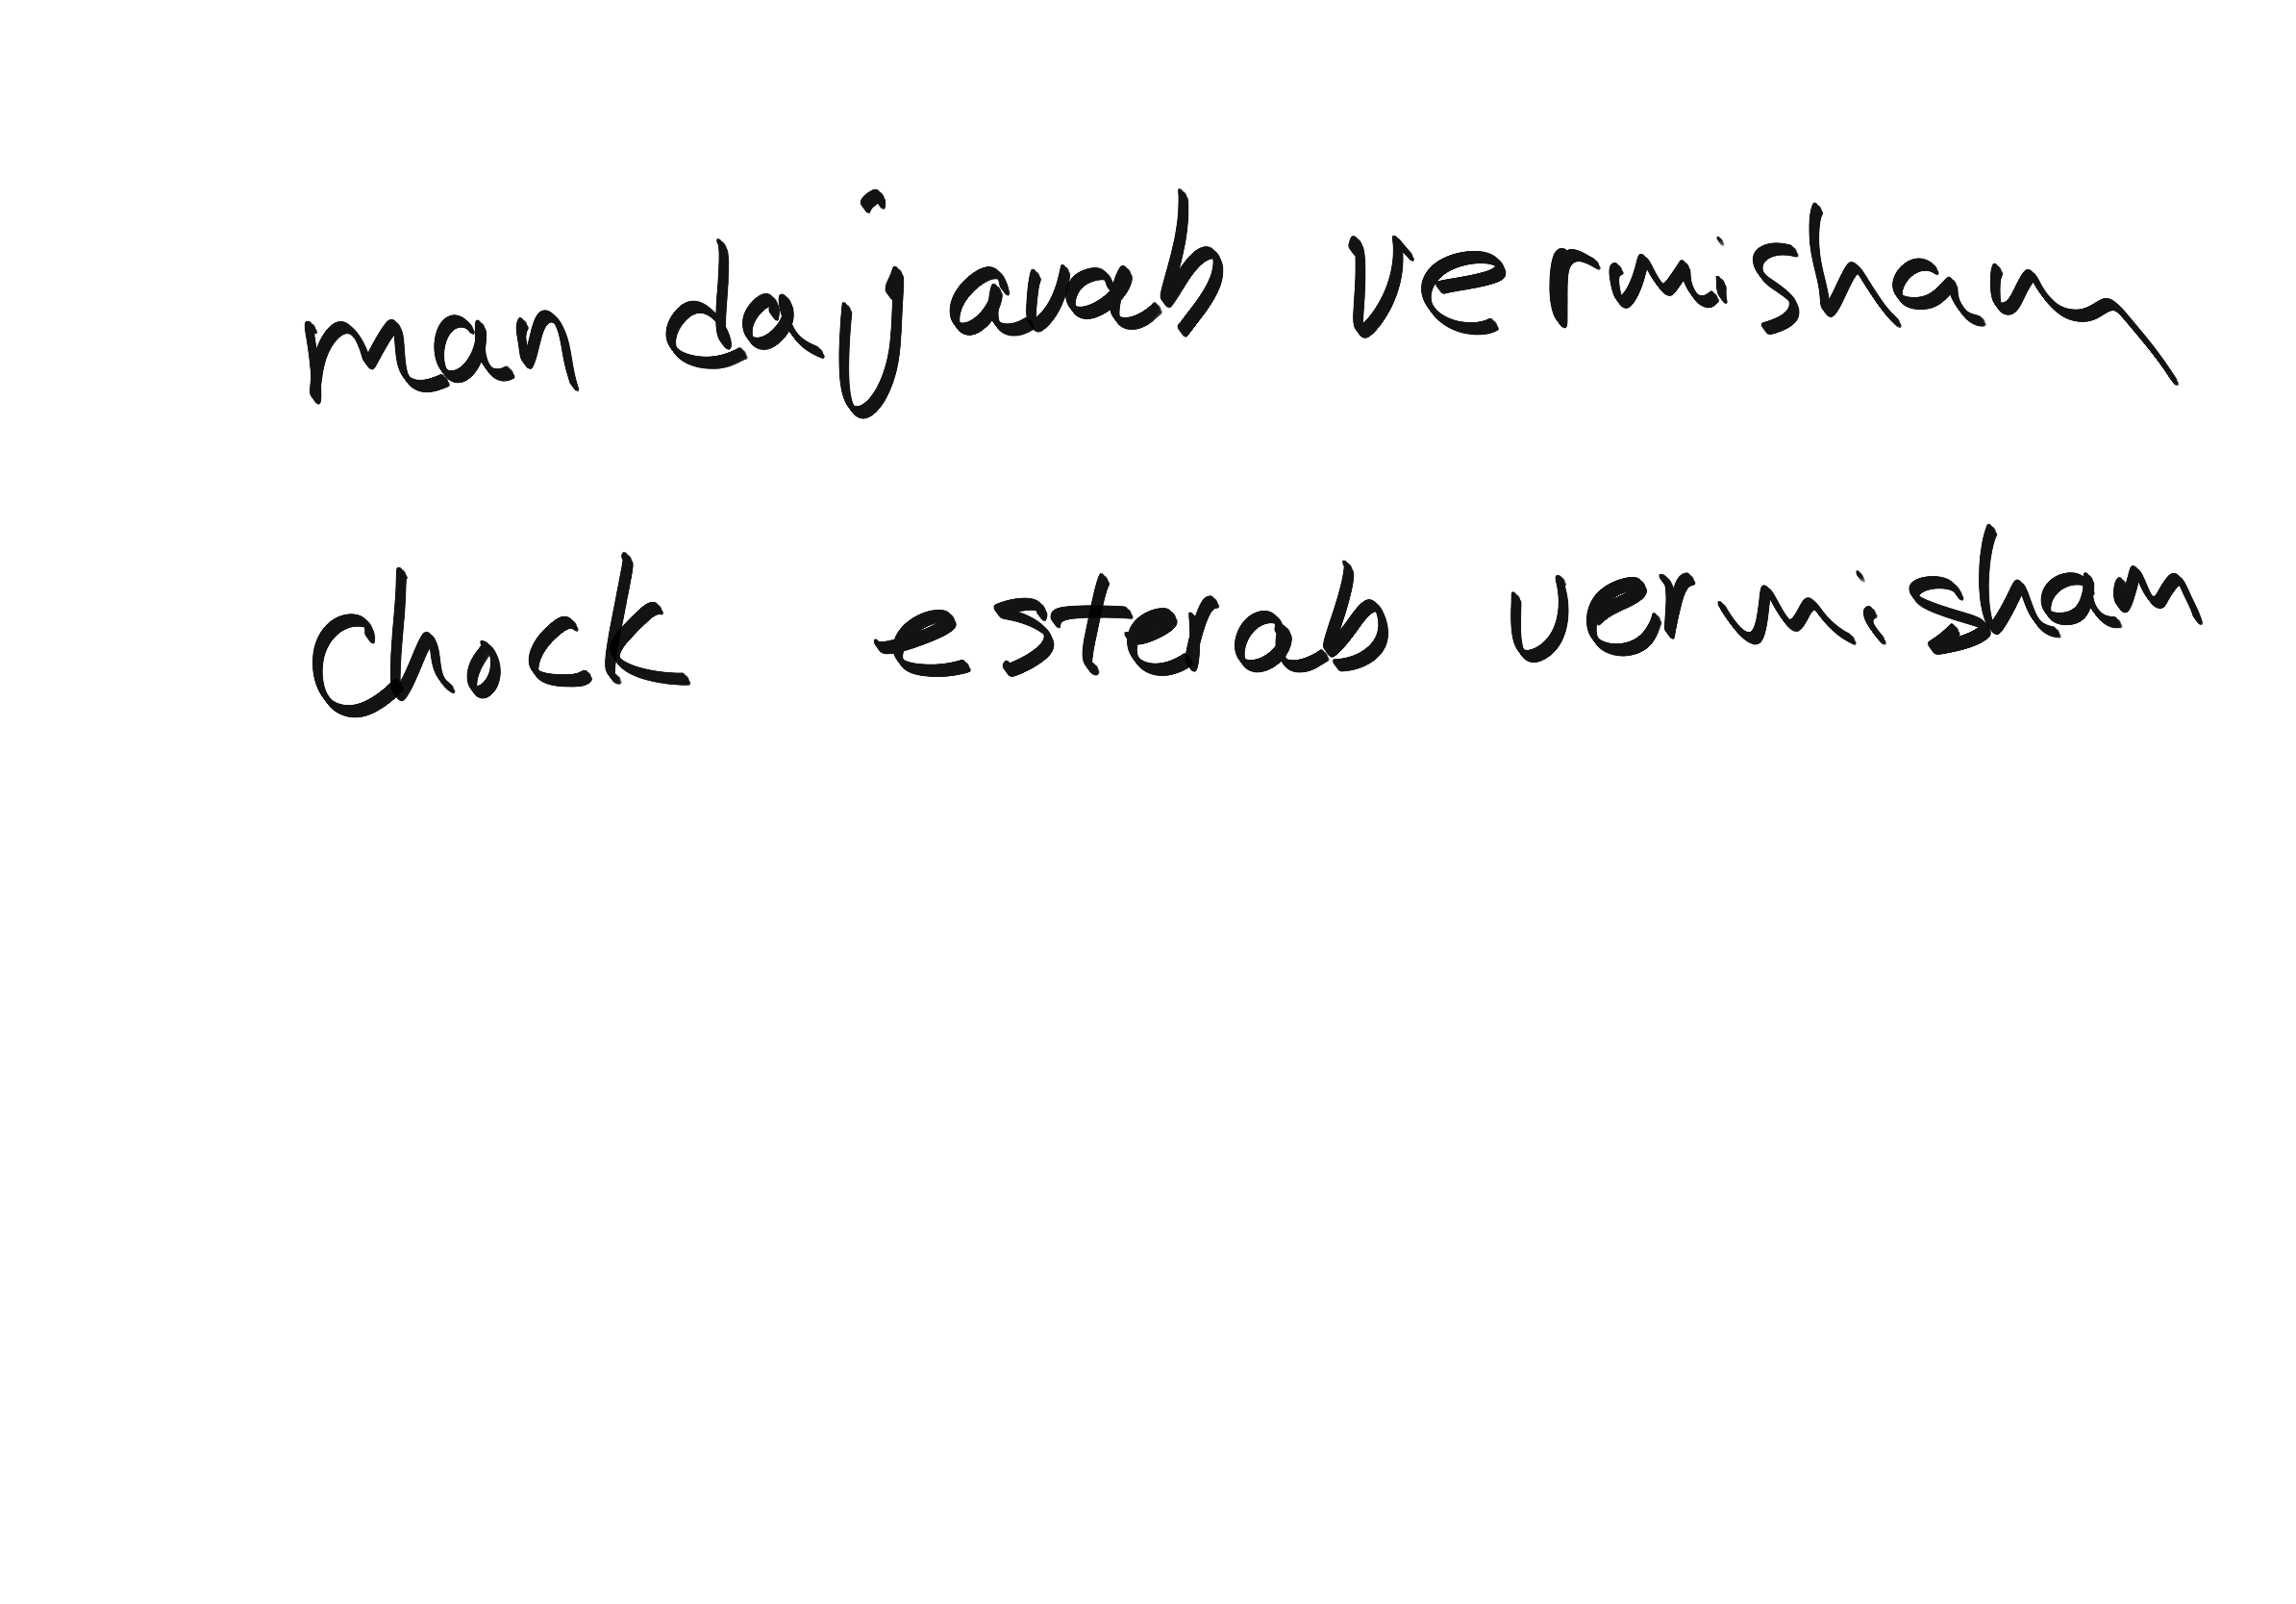 man da javab vermisham
chock esterab vermisham